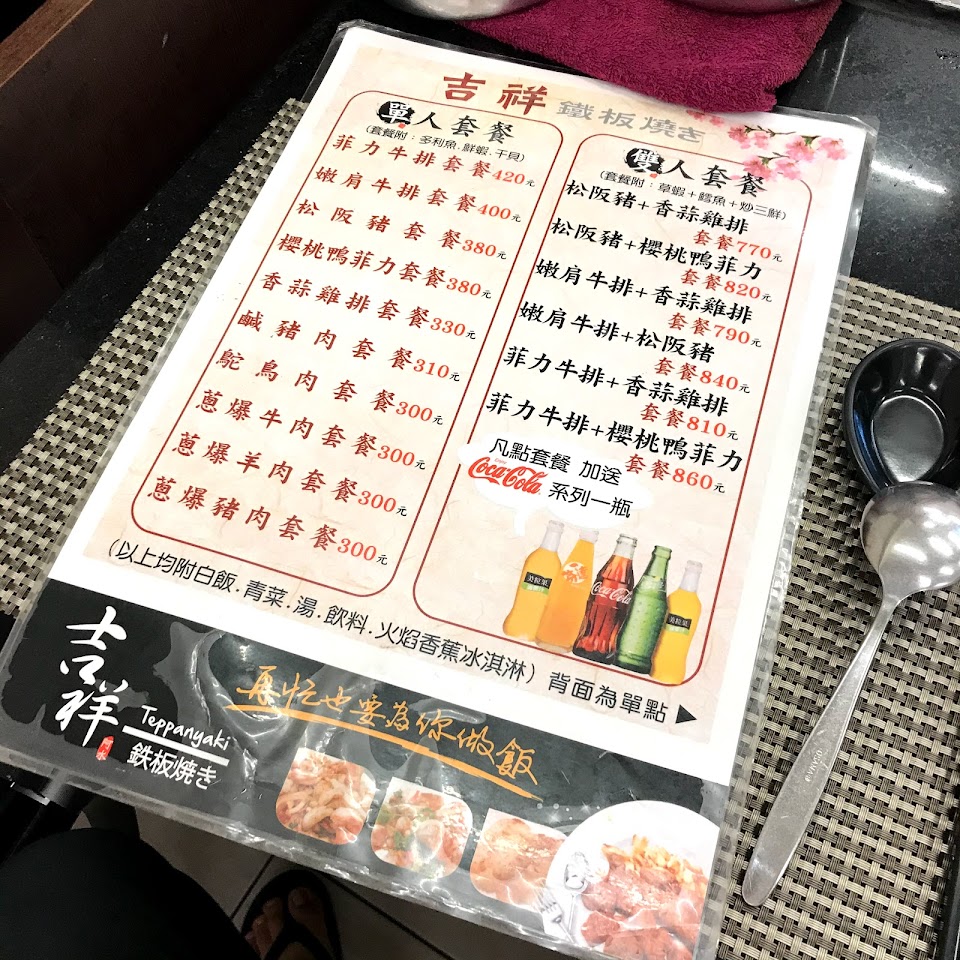 吉祥 鐵板燒き
單人套餐
(套餐附：多利魚.鮮蝦.干貝)
菲力牛排套餐420元
嫩肩牛排套餐400元
松阪豬套餐380元
櫻桃鴨菲力套餐380元
香蒜雞排套餐330元
鹹豬肉套餐310元
鴕鳥肉套餐300元
蔥爆牛肉套餐300元
蔥爆羊肉套餐300元
蔥爆豬肉套餐300元
雙人套餐
(套餐附：草蝦+鱈魚+炒三鮮)
松阪豬+香蒜雞排
套餐770元
松阪豬+櫻桃鴨菲力
套餐820元
嫩肩牛排+香蒜雞排
套餐790元
嫩肩牛排+松阪豬
套餐840元
菲力牛排+香蒜雞排
套餐810元
菲力牛排+櫻桃鴨菲力
套餐860元
凡點套餐 加送
Coca-Cola 系列一瓶
美粒果
Coca-Cola
美粒果
(以上均附白飯.青菜.湯.飲料.火焰香蕉冰淇淋) 背面為單點 ▶
吉祥
Teppanyaki
鉄板焼き
再忙也要為你做飯